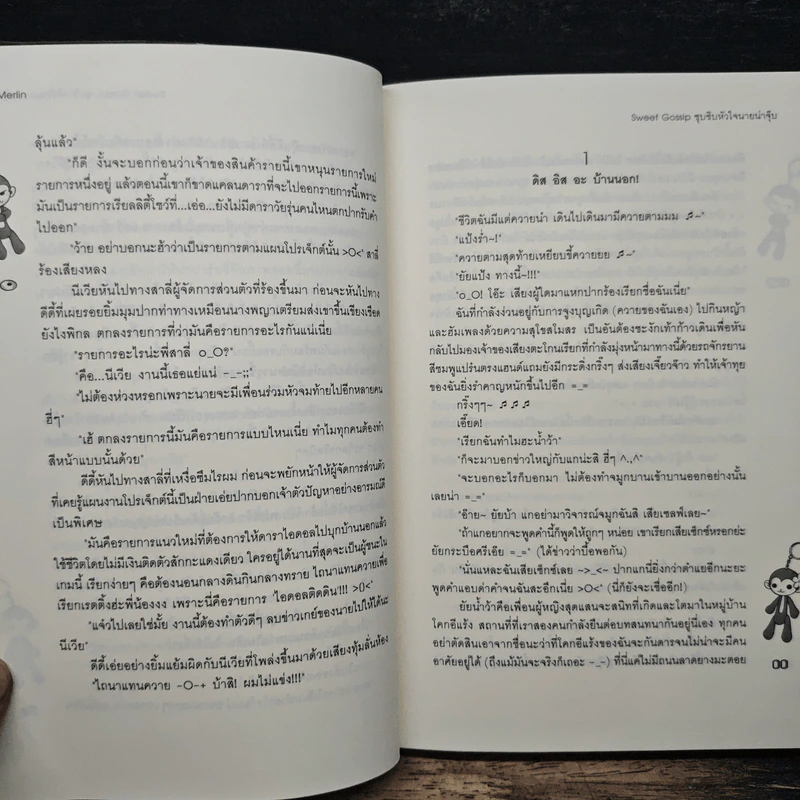 Merlin
ลุ้นแล้ว"
"ก็ดี งั้นจะบอกก่อนว่าเจ้าของสินค้ารายนี้เขาหนุนรายการใหม่
รายการหนึ่งอยู่ แล้วตอนนี้เขาก็ขาดแคลนดาราที่จะไปออกรายการนี้เพราะ
มันเป็นรายการเรียลลิตี้โชว์ที่...เอ่อ...ยังไม่มีดาราวัยรุ่นคนไหนตกปากรับคำ
ไปออก"
"ว้าย อย่าบอกนะฮ้าว่าเป็นรายการตามแผนโปรเจ็กต์นั้น >O<' สาลี่
ร้องเสียงหลง
นีเวียหันไปทางสาลี่ผู้จัดการส่วนตัวที่ร้องขึ้นมา ก่อนจะหันไปทาง
ดีดี้ที่เผยรอยยิ้มมุมปากท่าทางเหมือนนางพญาเตรียมส่งเขาขึ้นเขียงเชือด
ยังไงพิกล ตกลงรายการที่ว่ามันคือรายการอะไรกันแน่เนี่ย
"รายการอะไรน่ะพี่สาลี่ o_O?"
"คือ...นีเวีย งานนี้เธอแย่แน่ -_-;;"
"ไม่ต้องห่วงหรอกเพราะนายจะมีเพื่อนร่วมหัวจมท้ายไปอีกหลายคน
ฮึๆ"
"เฮ้ ตกลงรายการนี้มันคือรายการแบบไหนเนี่ย ทำไมทุกคนต้องทำ
สีหน้าแบบนั้นด้วย"
ดีดี้หันไปทางสาลี่ที่เหงื่อซึมไรผม ก่อนจะพยักหน้าให้ผู้จัดการส่วนตัว
ที่เคยรู้แผนงานโปรเจ็กต์นี้เป็นฝ่ายเอ่ยปากบอกเจ้าตัวปัญหาอย่างอารมณ์ดี
เป็นพิเศษ
"มันคือรายการแนวใหม่ที่ต้องการให้ดาราไอดอลไปบุกบ้านนอกแล้ว
ใช้ชีวิตโดยไม่มีเงินติดตัวสักกะแดงเดียว ใครอยู่ได้นานที่สุดจะเป็นผู้ชนะใน
เกมนี้ เรียกง่ายๆ คือต้องนอนกลางดินกินกลางทราย ไถนาแทนควายเพื่อ
เรียกเรตติ้งฮ่ะพี่น้องงง เพราะนี่คือรายการ 'ไอดอลติดดิน'!!! >O<'
"แจ๋วไปเลยใช่มั้ย งานนี้ต้องทำตัวดีๆ ลบข่าวเก่ของนายไปให้ได้นะ
นีเวีย"
ดีดี้เอ่ยอย่างยิ้มแย้มผิดกับนีเวียที่โพล่งขึ้นมาด้วยเสียงทุ้มลั่นห้อง
"ไถนาแทนควาย -O-+ บ้าสิ! ผมไม่แข่ง!!!"
Sweet Gossip ซุบซิบหัวใจนายน่าจุ๊บ
1
ดิส อิส อะ บ้านนอก!
"ชีวิตฉันมีแต่ควายนำ เดินไปเดินมามีควายตามมม ♬~"
"แป้งร่ำ~!"
"ควายตามสุดท้ายเหยียบขี้ควายยย ♬~"
"ยัยแป้ง ทางนี้~!!!"
"o_O! โอ๊ะ เสียงผู้ใดมาแหกปากร้องเรียกชื่อฉันเนี่ย"
ฉันที่กำลังง่วนอยู่กับการจูงบุญเกิด (ควายของฉันเอง) ไปกินหญ้า
และฮัมเพลงด้วยความสุโขสโมสร เป็นอันต้องชะงักเท้าก้าวเดินเพื่อหัน
กลับไปมองเจ้าของเสียงตะโกนเรียกที่กำลังมุ่งหน้ามาทางนี้ด้วยรถจักรยาน
สีชมพูแปร๋นตรงแฮนด์แถมยังมีกระดิ่งกริ๊งๆ ส่งเสียงเจี๊ยวจ๊าว ทำให้เจ้าทุย
ของฉันยิ่งรำคาญหนักขึ้นไปอีก =_=
กริ๊งๆๆ~ ♬ ♬ ♬
เอี๊ยด!
"เรียกฉันทำไมฮะน้ำว้า"
"ก็จะมาบอกข่าวใหญ่กับแกน่ะสิ ฮี่ๆ ^.,^"
"จะบอกอะไรก็บอกมา ไม่ต้องทำจมูกบานเข้าบานออกอย่างนั้น
เลยน่า =_="
"อ๊าย~ ยัยบ้า แกอย่ามาวิจารณ์จมูกฉันสิ เสียเซลฟ์เลย~"
"ถ้าแกอยากจะพูดคำนี้ก็พูดให้ถูกๆ หน่อย เขาเรียกเสียเซ็กซ์หรอกย่ะ
ยัยกระบือครีเอีย =_=" (ได้ข่าวว่าบื้อพอกัน)
"นั่นแหละฉันเสียเซ็กซ์เลย ~>_<~ ปากแกนี่ยิ่งกว่าตำแยอีกนะยะ
พูดคำแอบด่าคำจนฉันสะอึกเนี่ย >O<' (นี่ก็ยังจะเชื่ออีก!)
ยัยน้ำว้าคือเพื่อนผู้หญิงสุดแสนจะสนิทที่เกิดและโตมาในหมู่บ้าน
โคกอีแร้ง สถานที่ที่เราสองคนกำลังยืนต่อบทสนทนากันอยู่นี่เอง ทุกคน
อย่าตัดสินเอาจากชื่อนะว่าที่โคกอีแร้งของฉันจะกันดารจนไม่น่าจะมีคน
อาศัยอยู่ได้ (ถึงแม้มันจะจริงก็เถอะ -_-) ที่นี่แค่ไม่มีถนนลาดยางมะตอย